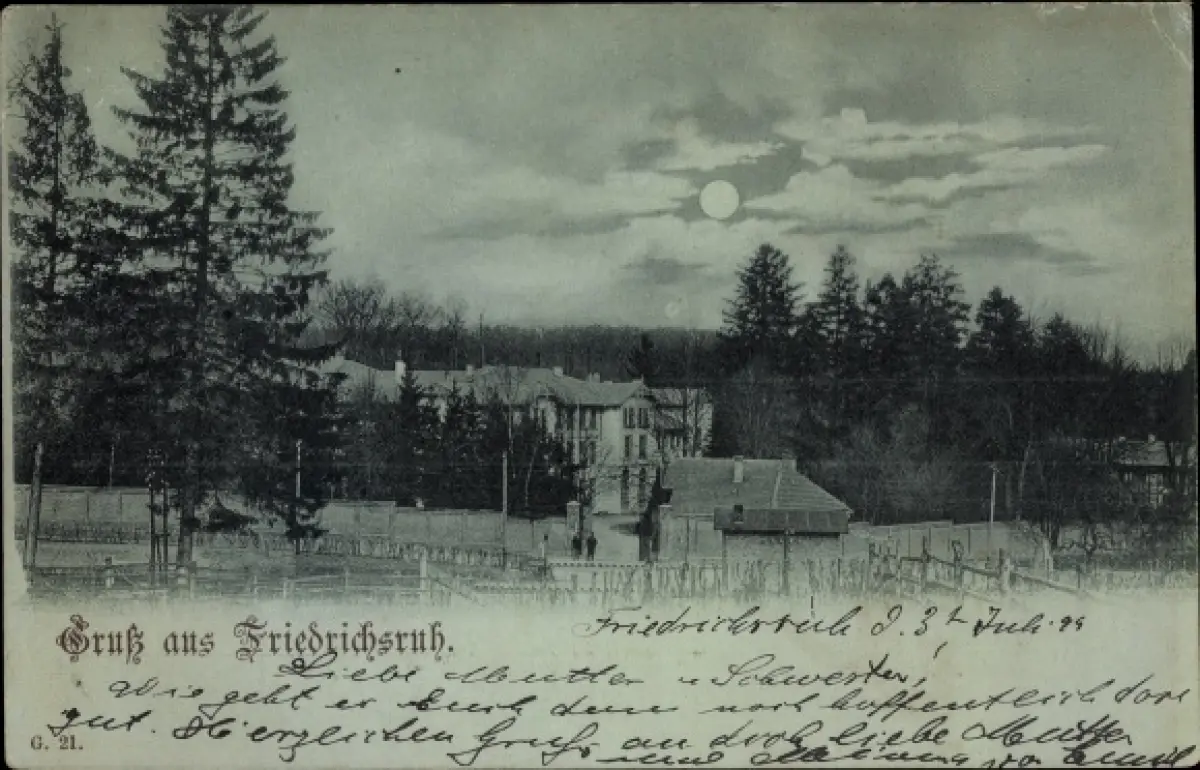 Gruß aus Friedrichsruh.
Friedrichsruh d. 3t Juli. 99
Liebe Mutter u Schwester,
Wie geht es Euch denn noch hoffentlich
gut. Herzlichen Gruß an dich liebe Mutter
und von Emil
G. 21.